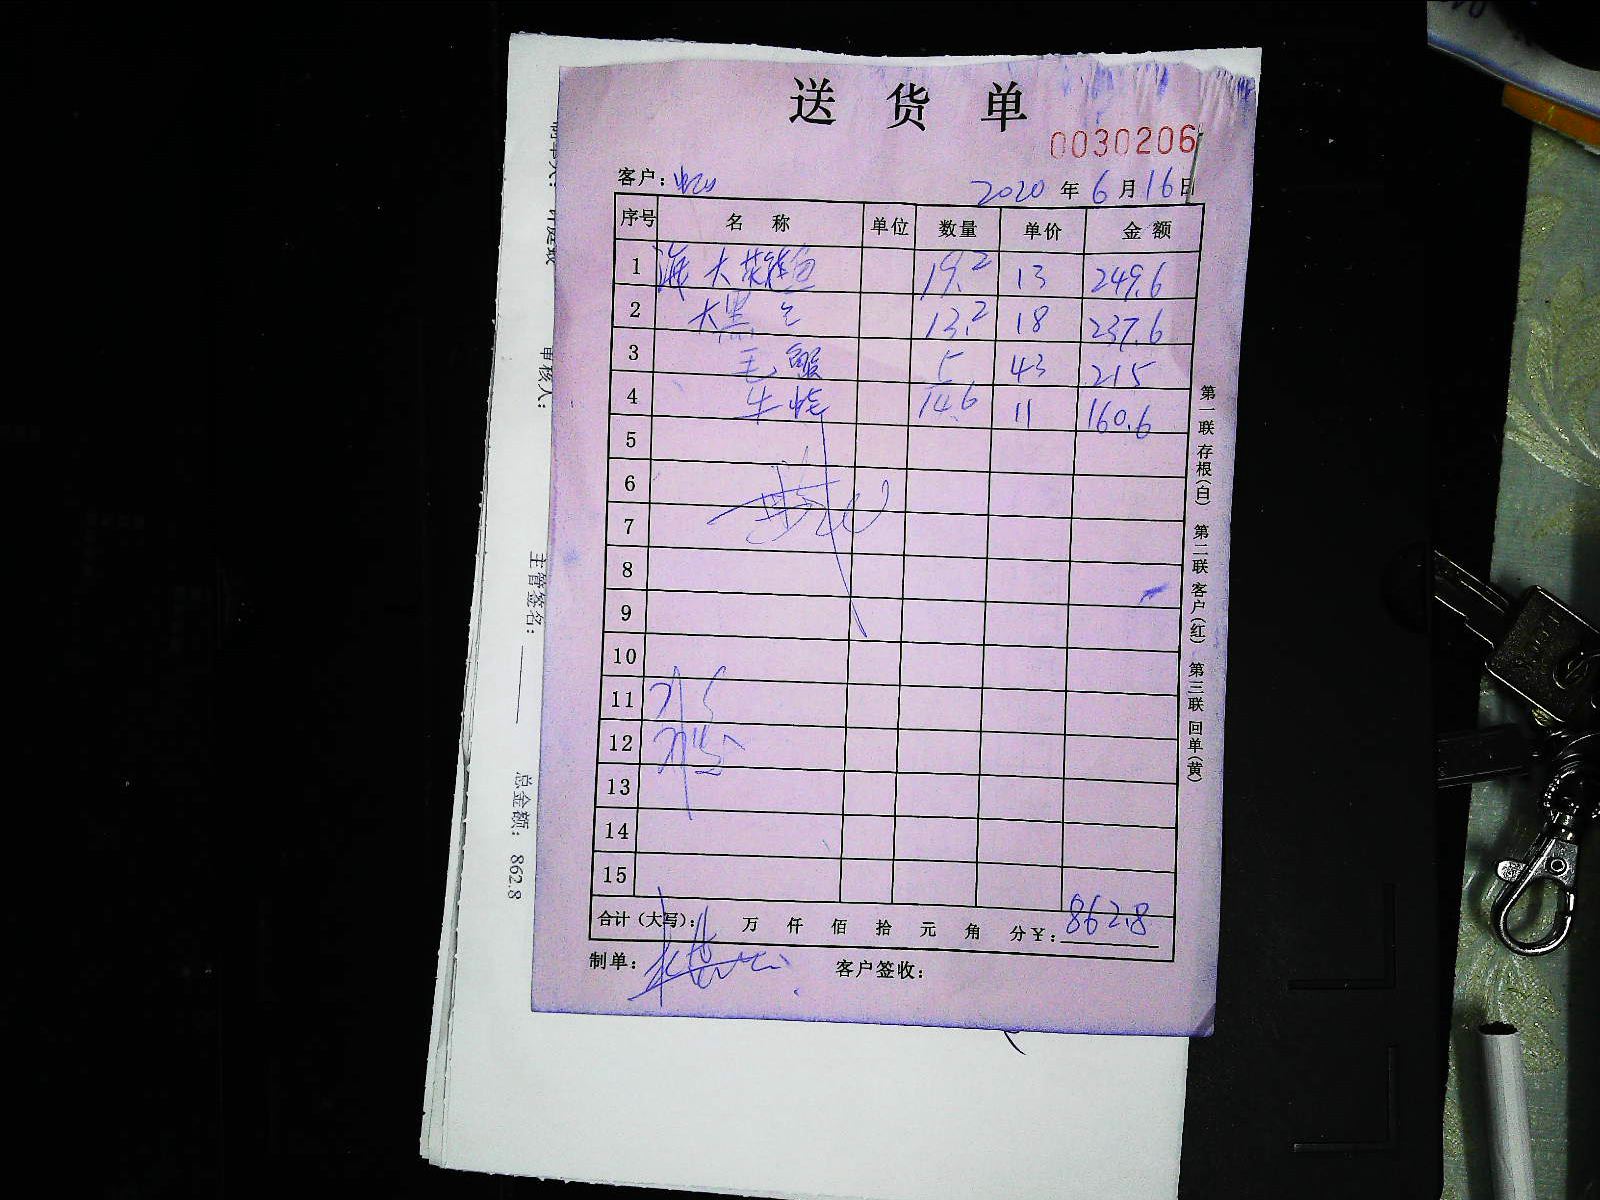 送 货 单
0030206
客户：
2020 年 6 月 16 日
序号 名 称 单位 数量 单价 金 额
1 海 大 19.2 13 249.6
2 大黑 13.2 18 237.6
3 毛蟹 5 43 215
4 14.6 11 160.6
5
6
7
8
9
10
11
12
13
14
15
合计（大写）： 万 仟 佰 拾 元 角 分 ¥： 862.8
制单： 客户签收：
第一联 存根（白） 第二联 客户（红） 第三联 回单（黄）
审核人：
主管签名：
总金额： 862.8